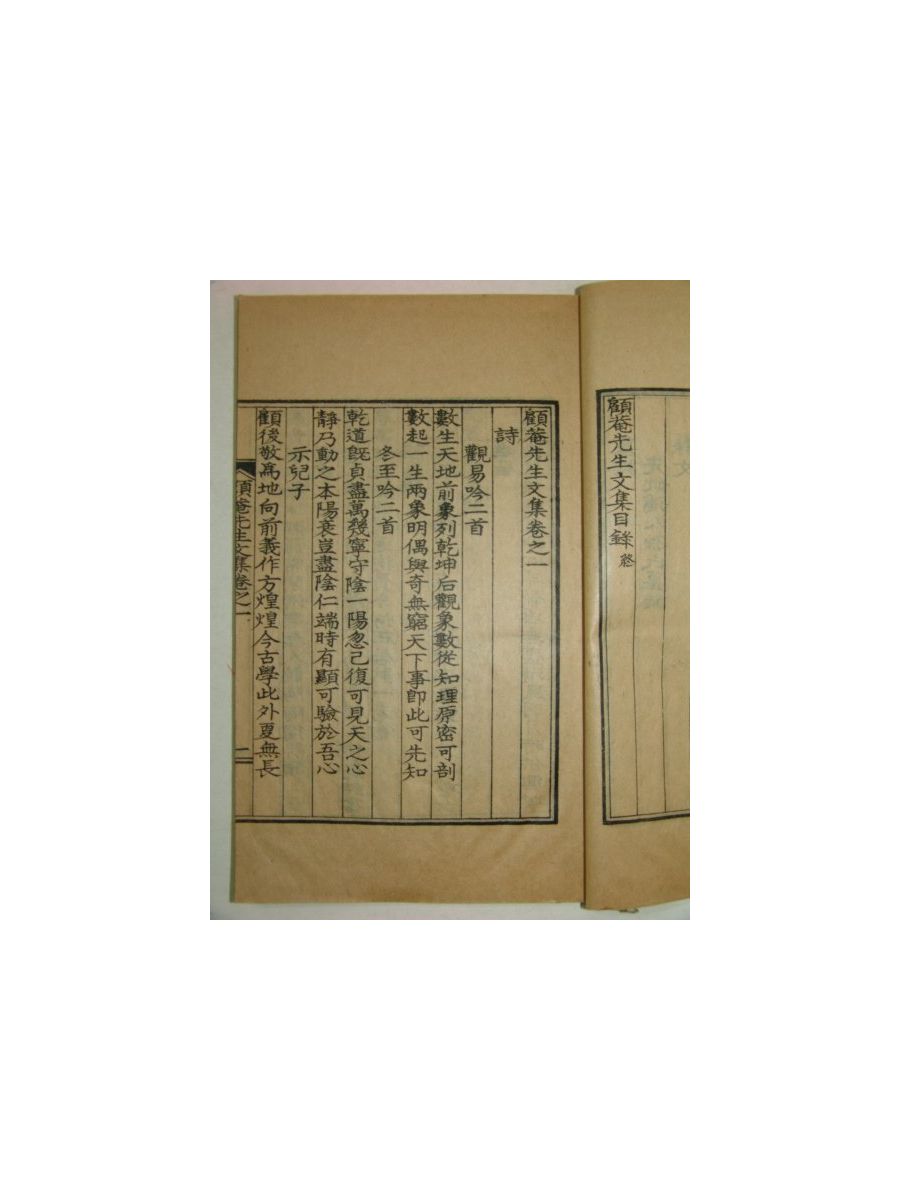 顧菴先生文集目錄 終
顧菴先生文集卷之一
詩
觀易吟二首
數生天地前象列乾坤后觀象數從知理原密可剖
數起一生兩象明偶與奇無窮天下事卽此可先知
冬至吟二首
乾道旣貞盡萬幾寧守陰一陽忽已復可見天之心
靜乃動之本陽衰豈盡陰仁端時有顯可驗於吾心
示兒子
顧後敬爲地向前義作方煌煌今古學此外夏無長
顧菴先生文集卷之一
二